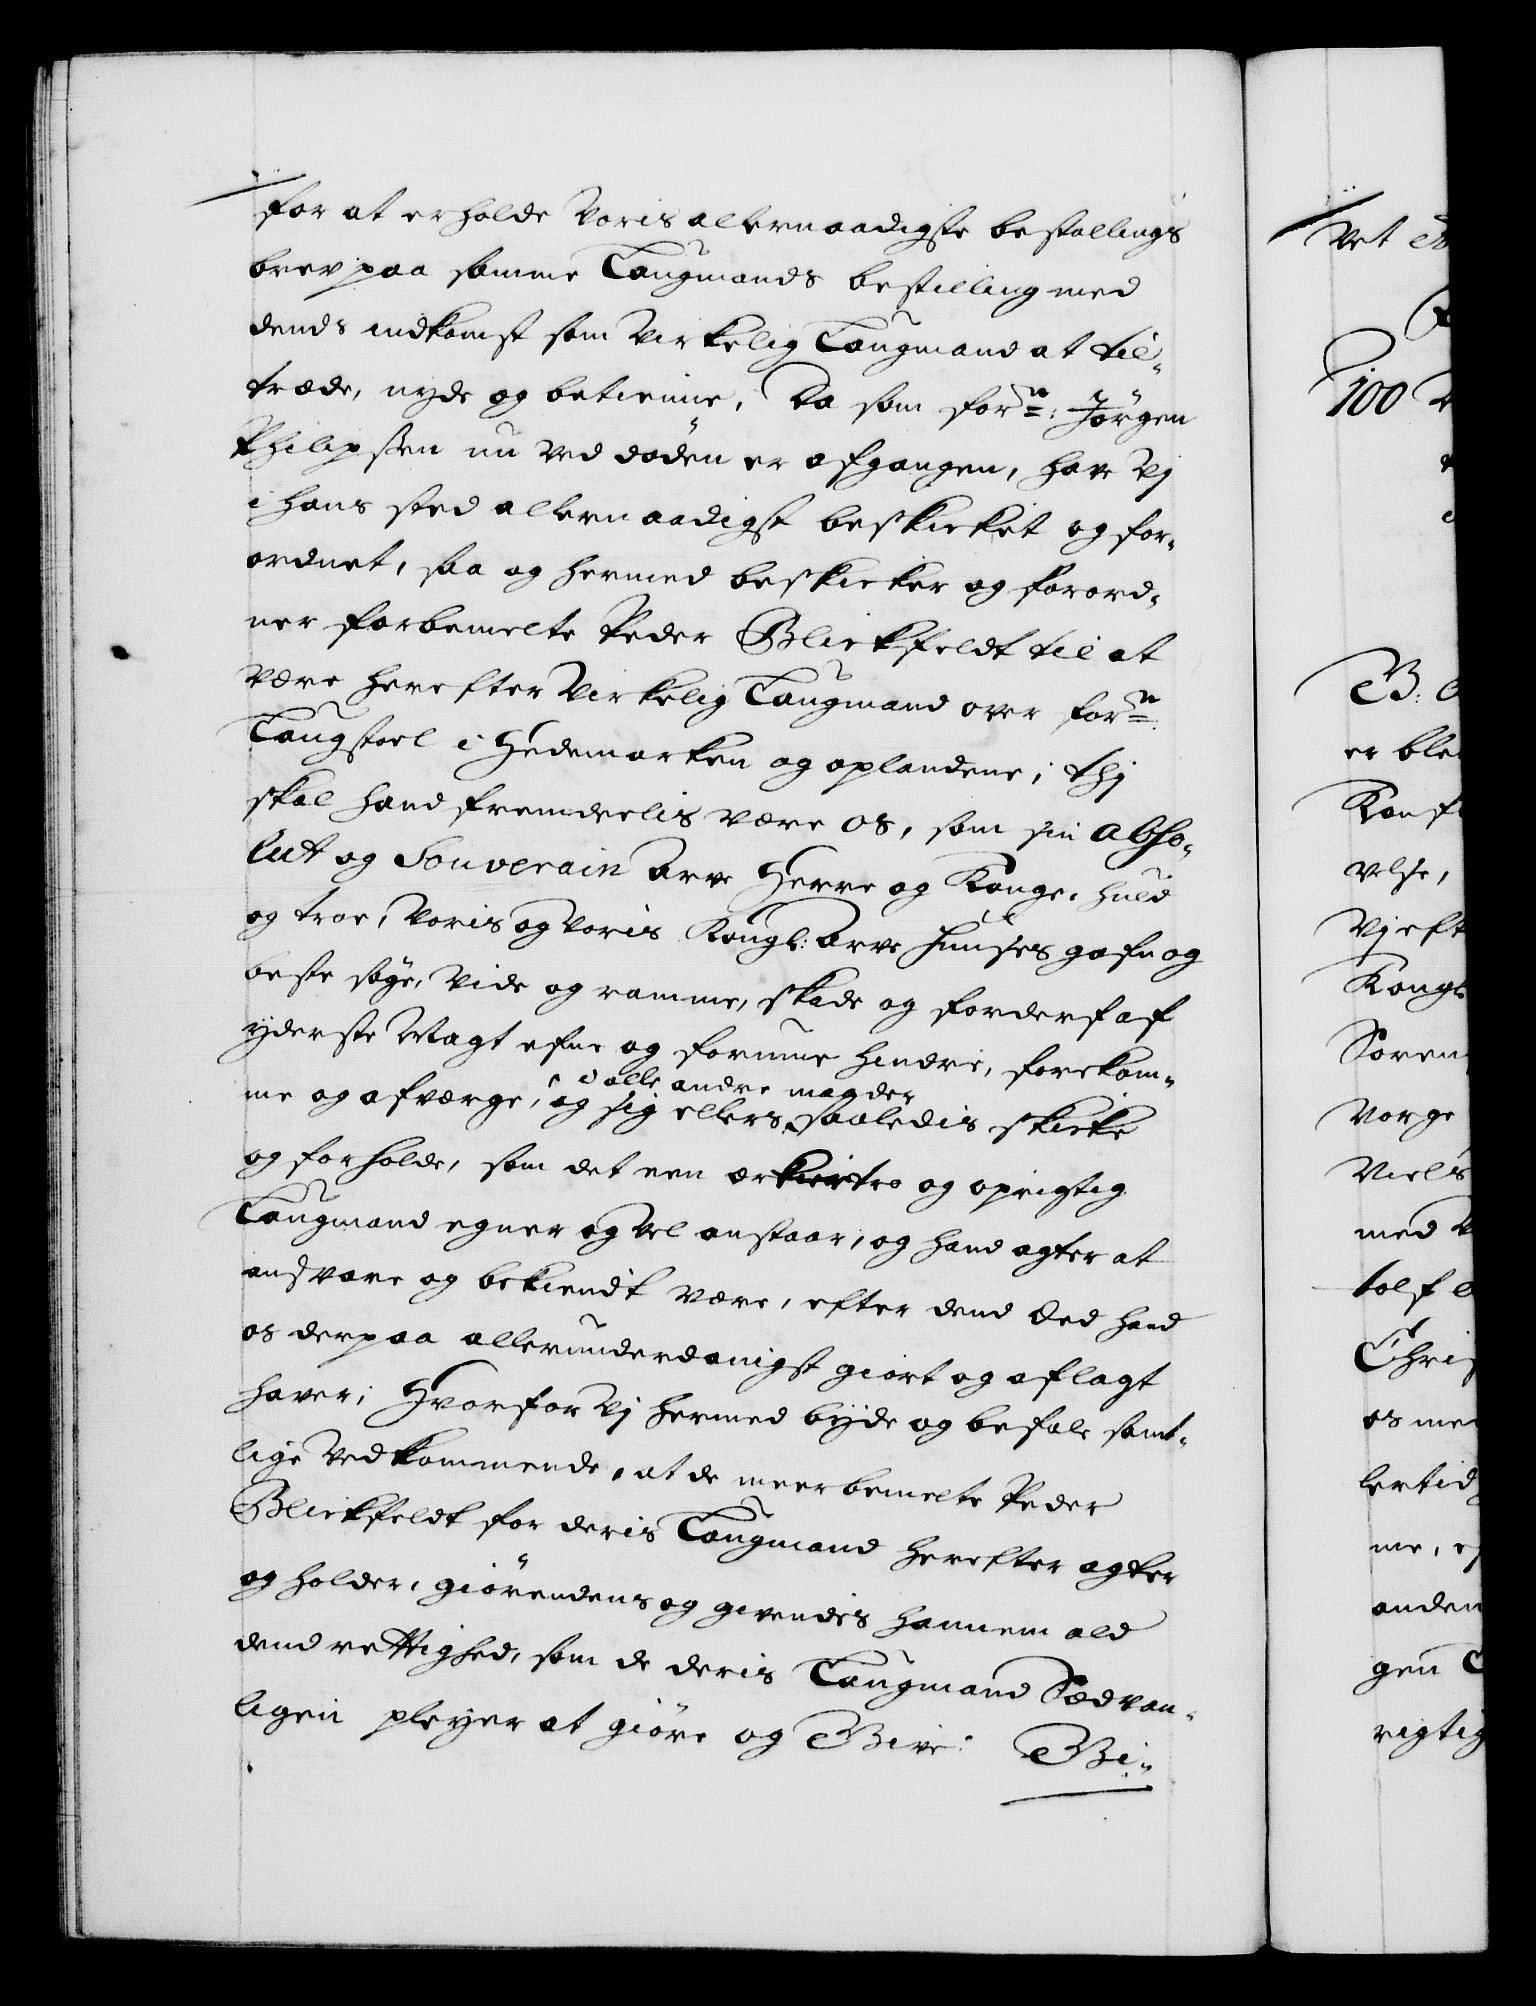 for at erholde Voris allernaadigste bestallings
brev paa samme Laugmands bestilling med
dends indkomst som Virkelig Laugmand at til-
træde, nyde og betienne, Da som forn: Jörgen
Philipsen nu ved döden er afgangen, have Vj
i hans sted allernaadigst beskicket og for-
ordnet, saa og hermed beskicker og forord-
ner forbemelte Peder Blickfeldt til at
være herefter Virkelig Laugmand over forn:
Laugstoel i Hedemarken og oplandene; thj
skal hand fremdeelis være os, som sin absso-
lut og Souverain Arve Herre og Konge, huld
og troe, Voris og Voris Kongl: Arve Huuses gafn og
beste söge, vide og ramme, skade og forderf af
yderste Magt efne og formue hindre, forekom-
i alle andre maader
me og afværge, og sig ellers saaledis skicke
og forholde, som det een ærkiertro og oprigtig
Laugmand egner og vel anstaar, og hand agter at
ansvare og bekiendt være, efter dend Eed hand
os derpaa allerunderdanigst giort og aflagt
haver; Hvorfor Vj hermed byde og befale samt-
lige Vedkommende, at de meerbemelte Peder
Blickfeldt for deris Laugmand herefter agter
og holder, giörendes og givendes hannem ald
dend rettighed, som de deris Laugmand Sædvan-
ligen pleyer at giöre og Give: Gi-
Vet
100
B:
er ble
velse,
Vj eft
Kongl
Soren
Vorge
Viels
med V
tolf
Chris
os me
lertid
me,
anden
gen
rigtig